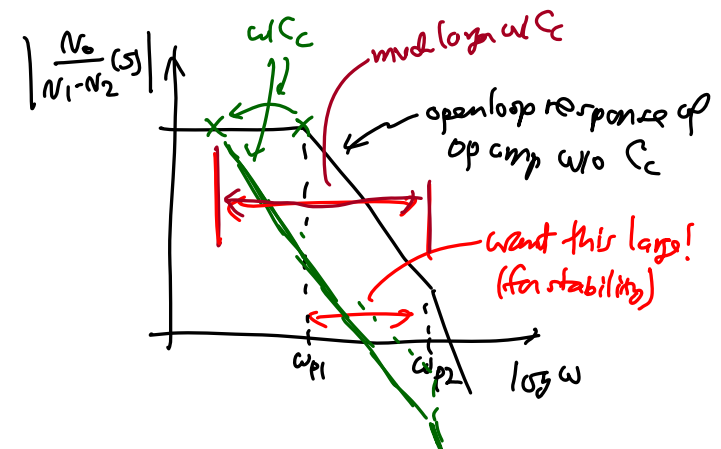 w/Cc
much larger w/ Cc
| No/(N1-N2) (s) |
open loop response of
op amp w/o Cc
want this large!
(for stability)
ωp1
ωp2
log ω